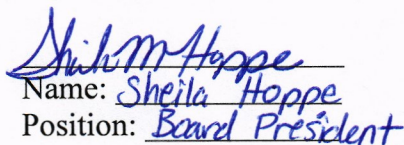 Sheila M Hoppe
Name: Sheila Hoppe
Position: Board President